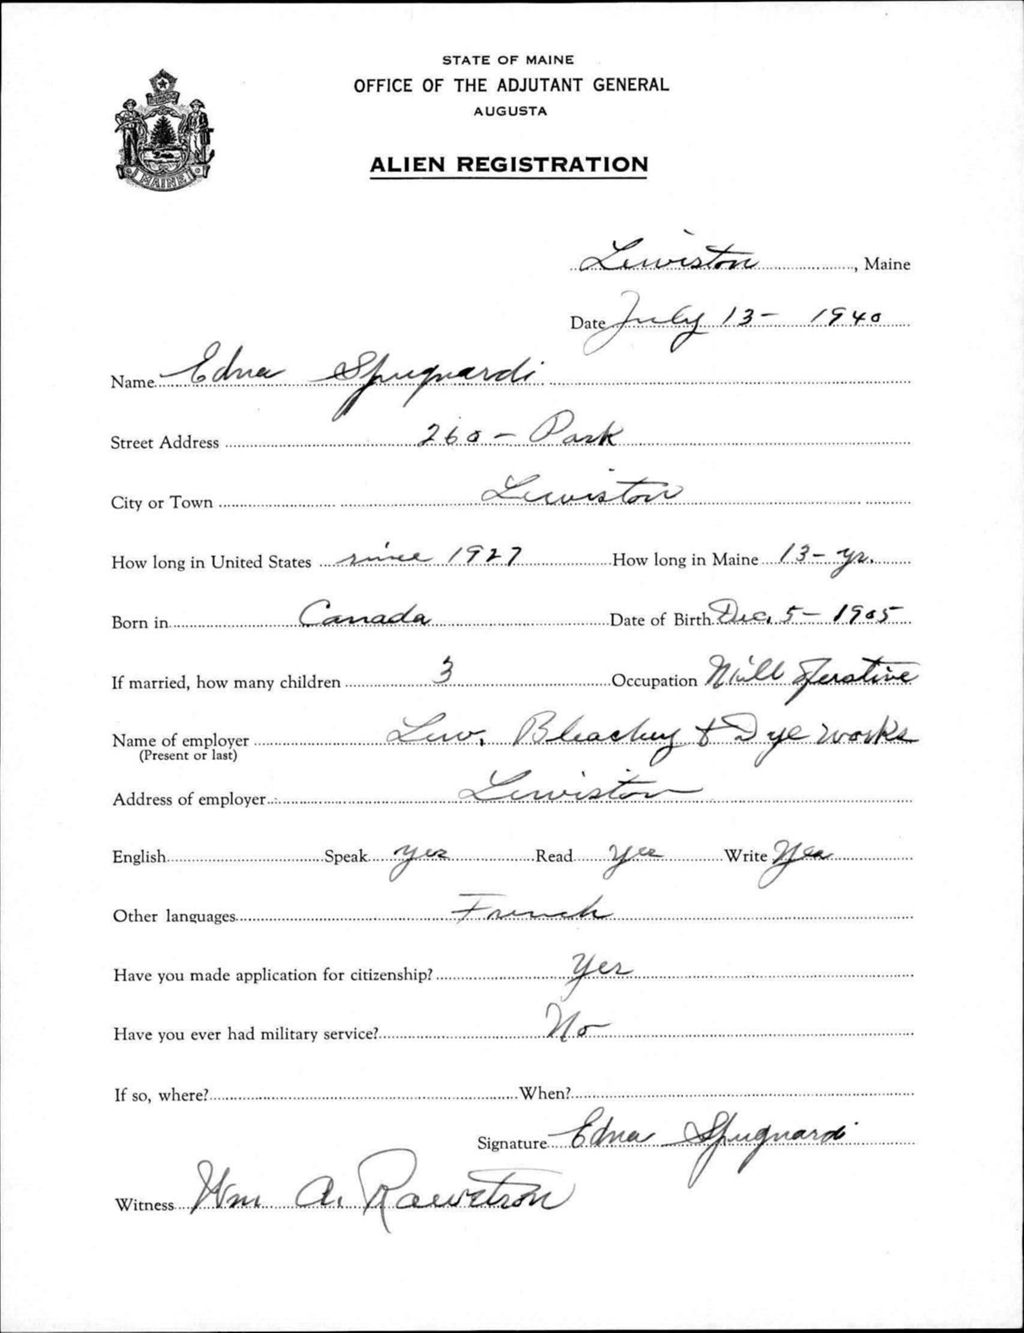 STATE OF MAINE
OFFICE OF THE ADJUTANT GENERAL
AUGUSTA
ALIEN REGISTRATION
MAINE
Lewiston, Maine
Date July 13 - 1940
Name Edna Spugnardi
Street Address 260 - Park
City or Town Lewiston
How long in United States since 1927 How long in Maine 13 - yr.
Born in Canada Date of Birth Dec. 5 - 1905
If married, how many children 3 Occupation Mill Operative
Name of employer Lew. Bleachery & Dye works
(Present or last)
Address of employer Lewiston
English Speak yes Read yes Write yes
Other languages French
Have you made application for citizenship? Yes
Have you ever had military service? No
If so, where? When?
Signature Edna Spugnardi
Witness Wm A.